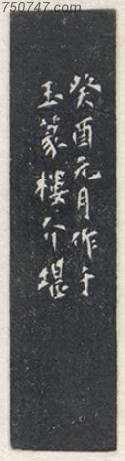 750747.com
癸酉元月作于
玉篆樓介堪